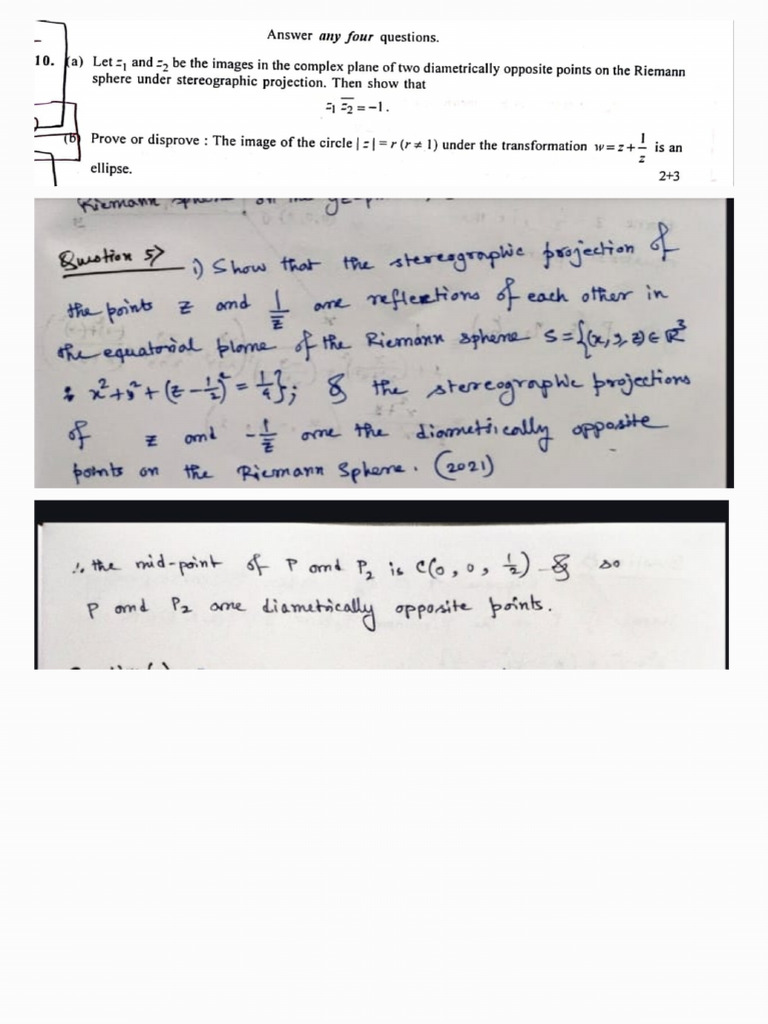 Answer any four questions.
10. (a) Let z₁ and z₂ be the images in the complex plane of two diametrically opposite points on the Riemann
sphere under stereographic projection. Then show that
z₁ z̄₂ = −1.
(b) Prove or disprove : The image of the circle | z | = r (r ≠ 1) under the transformation w = z + 1/z is an
ellipse.
2+3
Riemann on the
Question 5) i) Show that the stereographic projection of
the points z and 1/z̄ are reflections of each other in
the equatorial plane of the Riemann sphere S = {(x, y, z) ∈ R³
: x² + y² + (z − 1/2)² = 1/4}; & the stereographic projections
of z and −1/z̄ are the diametrically opposite
points on the Riemann Sphere. (2021)
∴ the mid-point of P and P₂ is C(0, 0, 1/2) & so
P and P₂ are diametrically opposite points.